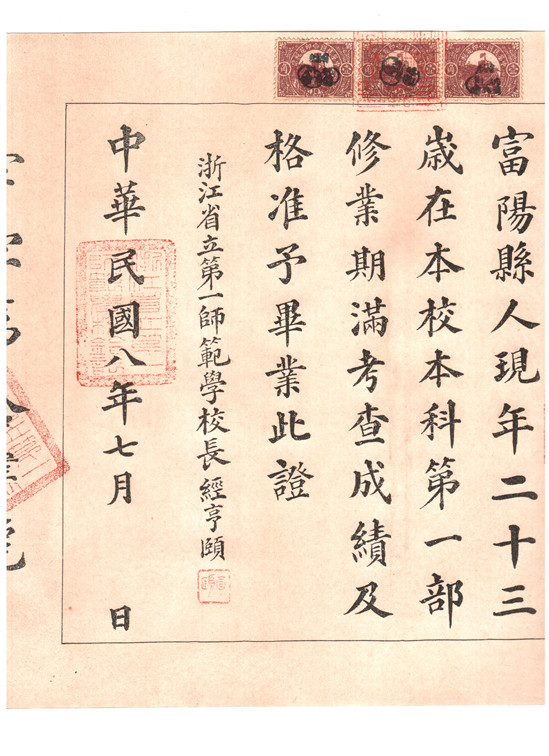 富陽縣人現年二十三
歲在本校本科第一部
修業期滿考查成績及
格准予畢業此證
浙江省立第一師範學校長經亨頤
中華民國八年七月 日